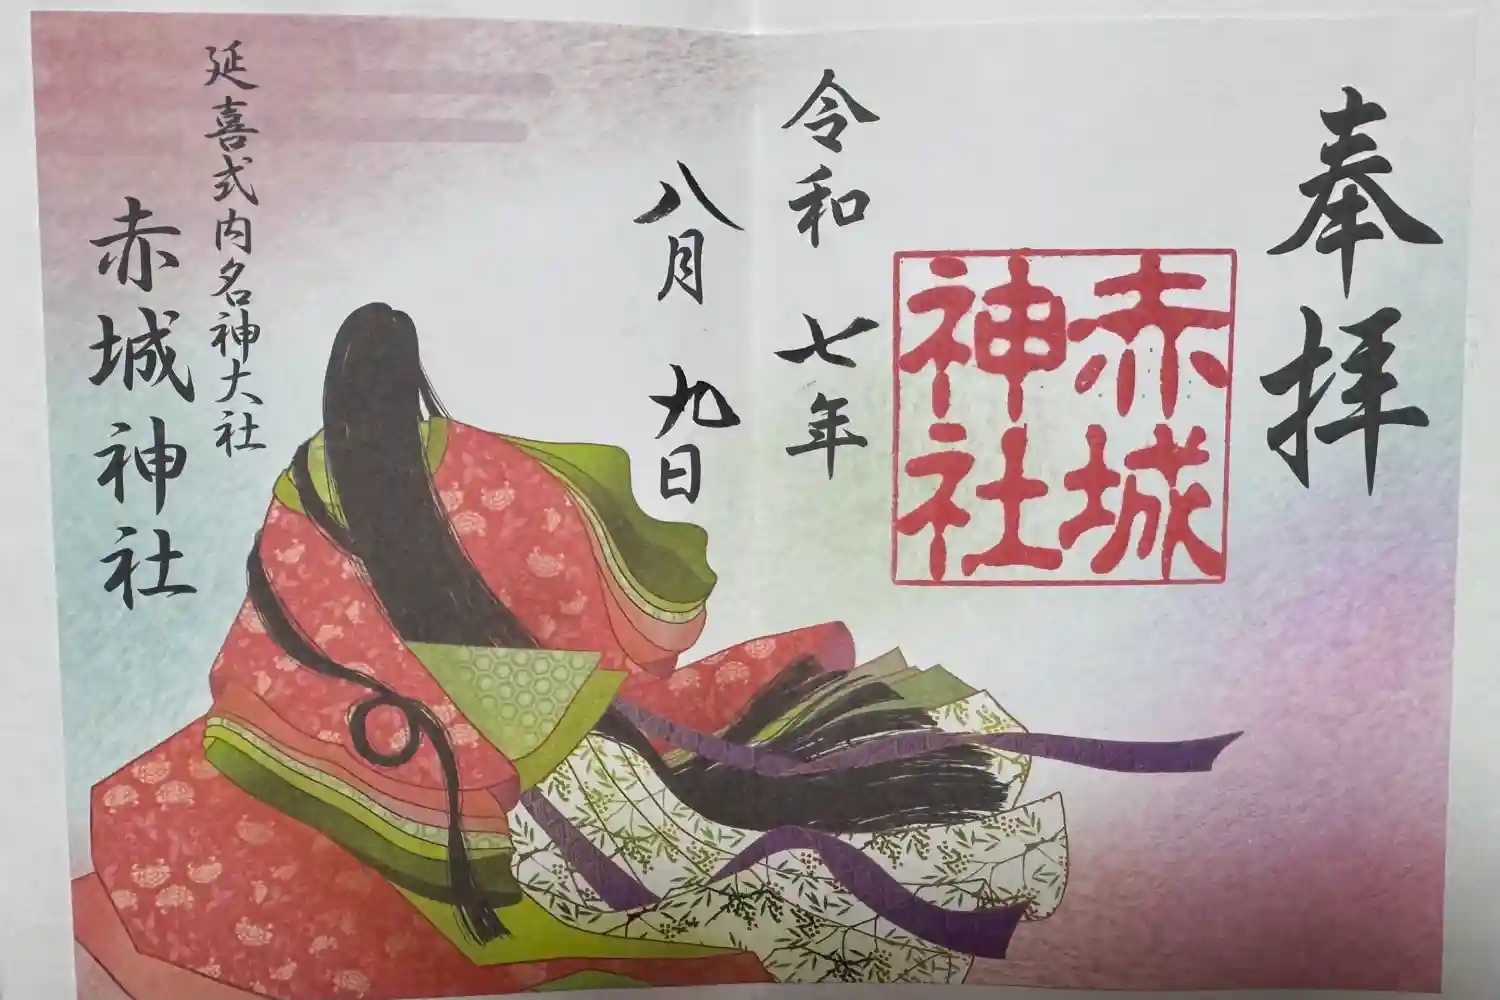 奉拝
赤城
神社
令和七年
八月九日
延喜式内名神大社
赤城神社